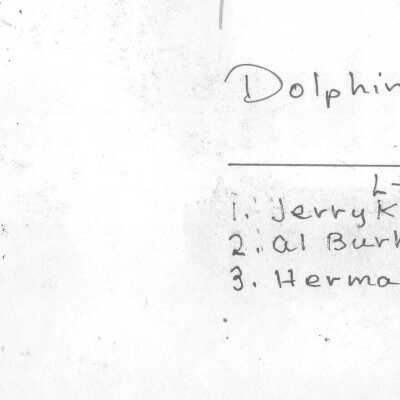 Dolphin
L-
1. Jerry K
2. al Burk
3. Herma